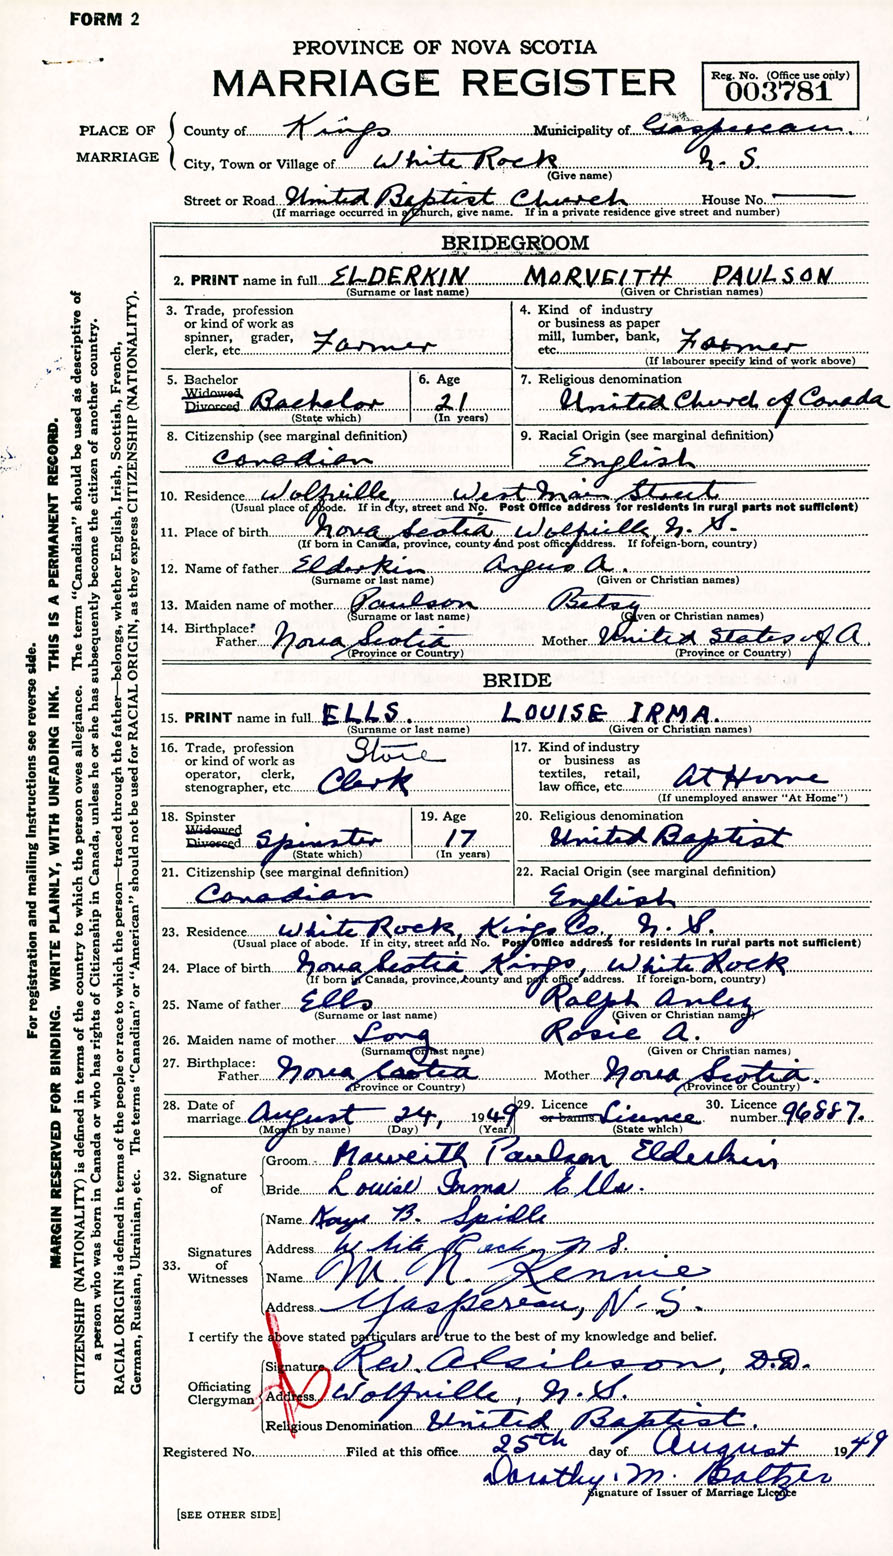 FORM 2
PROVINCE OF NOVA SCOTIA
MARRIAGE REGISTER
Reg. No. (Office use only)
003781
PLACE OF MARRIAGE
County of Kings Municipality of Gaspereau.
City, Town or Village of White Rock N. S.
(Give name)
Street or Road United Baptist Church House No.
(If marriage occurred in a church, give name. If in a private residence give street and number)
BRIDEGROOM
2. PRINT name in full ELDERKIN MORVEITH PAULSON
(Surname or last name) (Given or Christian names)
3. Trade, profession or kind of work as spinner, grader, clerk, etc. Farmer
4. Kind of industry or business as paper mill, lumber, bank, etc. Farmer
(If labourer specify kind of work above)
5. Bachelor Widowed Divorced Bachelor
(State which)
6. Age 21
(In years)
7. Religious denomination
United Church of Canada
8. Citizenship (see marginal definition)
Canadian
9. Racial Origin (see marginal definition)
English
10. Residence Wolfville, West Main Street
(Usual place of abode. If in city, street and No. Post Office address for residents in rural parts not sufficient)
11. Place of birth Nova Scotia Wolfville, N. S.
(If born in Canada, province, county and post office address. If foreign-born, country)
12. Name of father Elderkin Angus A.
(Surname or last name) (Given or Christian names)
13. Maiden name of mother Paulson Betsy
(Surname or last name) (Given or Christian names)
14. Birthplace: Father Nova Scotia Mother United States of A
(Province or Country) (Province or Country)
BRIDE
15. PRINT name in full ELLS. LOUISE IRMA.
(Surname or last name) (Given or Christian names)
16. Trade, profession or kind of work as operator, clerk, stenographer, etc. Store Clerk
17. Kind of industry or business as textiles, retail, law office, etc. At Home
(If unemployed answer "At Home")
18. Spinster Widowed Divorced Spinster
(State which)
19. Age 17
(In years)
20. Religious denomination
United Baptist
21. Citizenship (see marginal definition)
Canadian
22. Racial Origin (see marginal definition)
English
23. Residence White Rock, Kings Co., N. S.
(Usual place of abode. If in city, street and No. Post Office address for residents in rural parts not sufficient)
24. Place of birth Nova Scotia Kings, White Rock
(If born in Canada, province, county and post office address. If foreign-born, country)
25. Name of father Ells Ralph
(Surname or last name) (Given or Christian names)
26. Maiden name of mother Long Rosie A.
(Surname or last name) (Given or Christian names)
27. Birthplace: Father Nova Scotia Mother Nova Scotia.
(Province or Country) (Province or Country)
28. Date of marriage August 24, 1949
(Month by name) (Day) (Year)
29. Licence or banns Licence
(State which)
30. Licence number 96887.
32. Signature of
Groom Morveith Paulson Elderkin
Bride Louise Irma Ells.
33. Signatures of Witnesses
Name Kaye B. Spidle
Address White Rock, N S.
Name M. N. Rennie
Address Gaspereau, N. S.
I certify the above stated particulars are true to the best of my knowledge and belief.
Officiating Clergyman
Signature Rev. D.D.
Address Wolfville, N. S.
Religious Denomination United Baptist.
Registered No. Filed at this office 25th day of August 1949
Dorothy. M. Baltzer
Signature of Issuer of Marriage Licence
[SEE OTHER SIDE]
For registration and mailing instructions see reverse side.
MARGIN RESERVED FOR BINDING. WRITE PLAINLY, WITH UNFADING INK. THIS IS A PERMANENT RECORD.
CITIZENSHIP (NATIONALITY) is defined in terms of the country to which the person owes allegiance. The term "Canadian" should be used as descriptive of
a person who was born in Canada or who has rights of Citizenship in Canada, unless he or she has subsequently become the citizen of another country.
RACIAL ORIGIN is defined in terms of the people or race to which the person—traced through the father—belongs, whether English, Irish, Scottish, French,
German, Russian, Ukrainian, etc. The terms "Canadian" or "American" should not be used for RACIAL ORIGIN, as they express CITIZENSHIP (NATIONALITY).